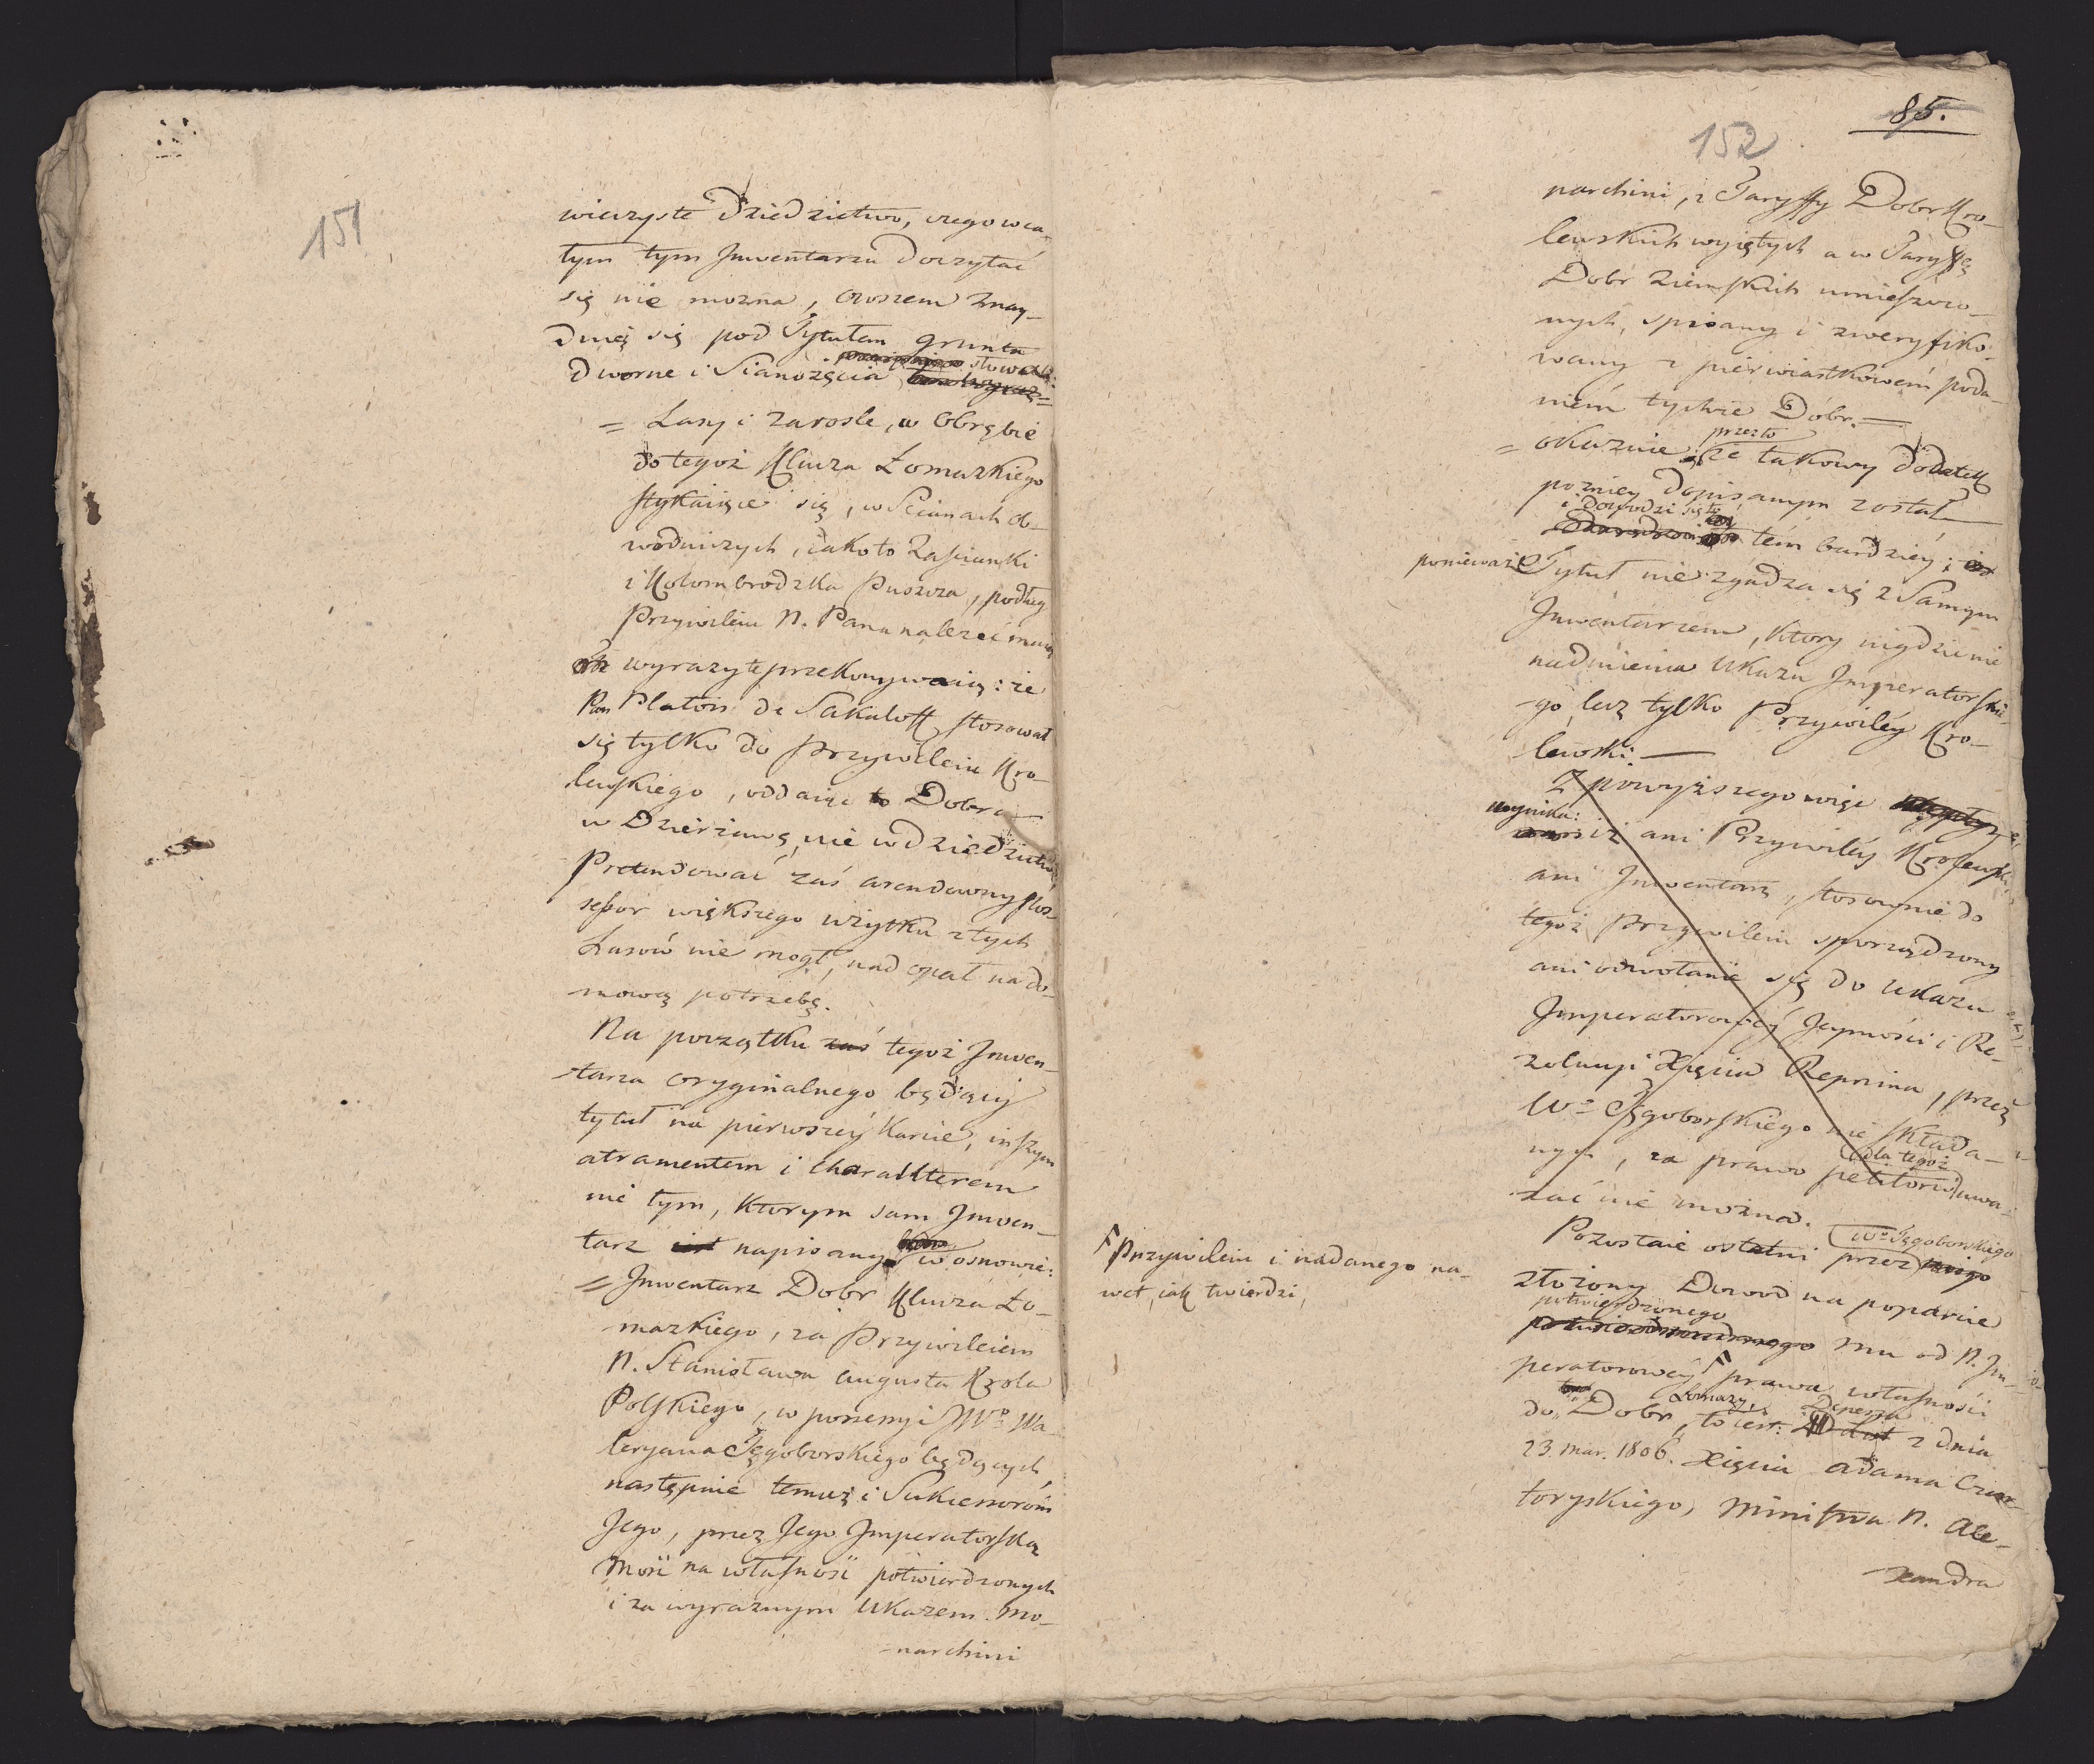 151
wieczyste Dziedzictwo, czego w ca-
łym tym Inwentarzu doczytać
się nie można, owszem znay-
duię się pod Tytułem grunta
słowa:
dworne i Sianożęcia
= Lasy i Zarosle, w Obrębie
do tegoż Klucza Łomazkiego
stykaiące się, w Scianach ob-
wodniczych, iako to Zascianki
i Kolombrodzka Puszcza, podług
Przywileiu N. Pana należeć maią
wyrazy te przekonywaią: że
Pan Platon de Sakuloff stosował
się tylko do Przywileiu Kro-
lewskiego, oddaiąc to Dobra
w Dzierżawę, nie w dziedzictwo,
Pretendować zaś arendowny Pos-
sessor większego użytku z tych
Lasów nie mogł, nad opał na do-
mową potrzebę.
Na początku zaś tegoż Inwen-
tarza oryginalnego będący
tytuł na pierwszey karcie, inszym
atramentem i charakterem
nie tym, ktorym sam Inwen-
tarz iest napisany w osnowie:
= Inwentarz Dobr Klucza Ło-
mazkiego, za Przywileiem
N. Stanisława Augusta Krola
Polskiego, w possessyi JWo Wa-
leryana Tęgoborskiego będących,
następnie temuż i Sukcessorom
Jego, przez Jego Imperatorską
Mość na własność potwierdzonych
i za wyraznym Ukazem Mo-
narchini
85.
152
narchini, z Taryffy Dobr Kro-
lewskich wyiętych a w Taryffę
Dobr Ziemskich umieszczo-
nych, spisany i zweryfiko-
wany z pierwiastkowem poda-
niem tychże Dóbr. —
przezto
= okazuie się, że takowy dodatek
pozniey dopisanym został
i dowodzi się to
tém bardziey;
ponieważ Tytuł nie zgadza się z Samym
Inwentarzem, ktory nigdzie nie
nadmienia Ukazu Imperatorskie-
go, lecz tylko Przywiley Kro-
lewski. —
Z powyższego więc
wynika:
iż ani Przywiley Krolewski
ani Inwentarz, stosownie do
tegoż Przywileiu sporządzony
ani odwołanie się do Ukazu
Imperatorowey Jeymości i Re-
zolucyi Xięcia Repnina, przez
Wo Tęgoborskiego nie składa-
dla tegoż
nych, za prawo petitorii uwa-
żać nie można.
Wo Tęgoborskiego
Pozostaie ostatni przez niego
złożony Dowod na poparcie
potwierdzonego
mu od N. Im-
peratorowey F prawa własności
Łomazy Depesza
do Dobr, to iest: List z dnia
23. Mar. 1806. Xięcia Adama Czar-
toryskiego, Ministra N. Ale-
xandra
F Przywileiu i nadanego na-
wet, iak twierdzi,